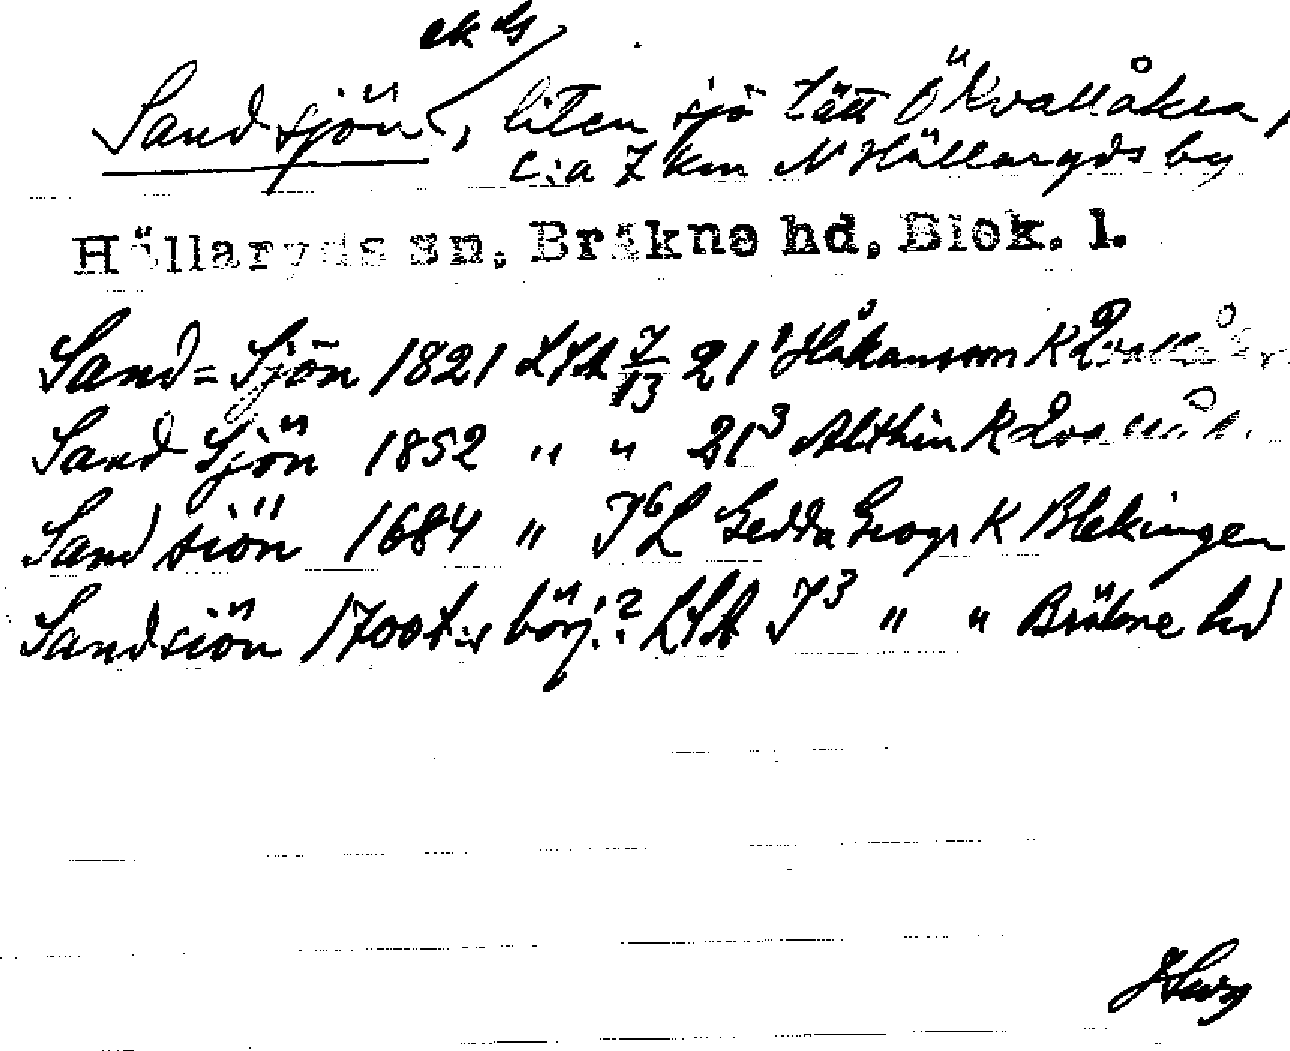 ek G
Sandsjön, liten sjö tätt Ö Kvallåkra,
c:a 7 km N Hällaryds by
Hällaryds sn. Bräkne hd. Blek. l.
Sand=Sjön 1821 LSA 7/13 21¹ Håkansson K Qvallåkr.
Sand Sjön 1852 " " 21³ Althin K
Sand siön 1684 " J⁶L Gedda Geogr K Blekingen
Sandsiön 1700t:s börj:? LSA J³ " " Bräkne hd